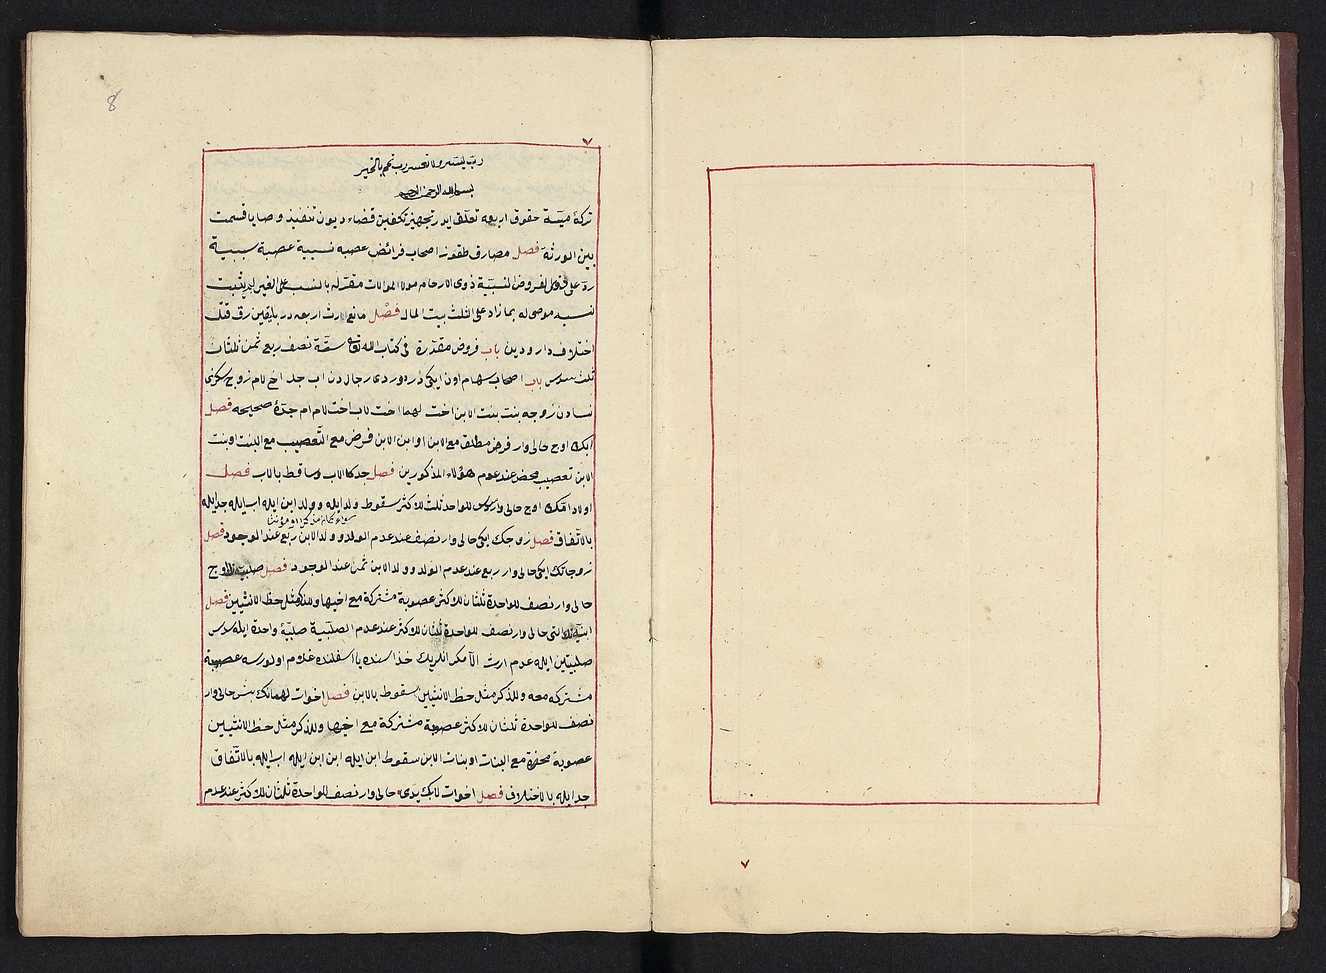 8
٧
رب يسر ولا تعسر رب تمم بالخير
بسم الله الرحمن الرحيم
تركۀ ميتـه حقوق اربعه تعلق ايدر تجهيز تكفين قضاء ديون تنفيذ وصايا قسمت
بين الورثة فصل مصارف طقوزدر اصحاب فرائض عصبه نسبية عصبة سببية
رد على ذوى الفروض النسبية ذوى الارحام مولا الموالات مقرله بالنسب على الغير
نسبه موصى له بما زاد على الثلث بيت المال فصل مانع ارث اربعه در باليقين رق قتل
اختلاف دار ودين باب فروض مقدرة فى كتاب الله ستة نصف ربع ثمن ثلثان
ثلث سدس باب اصحاب سهام اون ايكى در دوردى رجالدن اب جد اخ لام زوج سكزى
نسادن زوجه بنت بنت الابن اخت لهما اخت لاب اخت لام ام جدۀ صحيحه فصل
ابك اوج حالى وار فرض مطلق مع الابن او ابن الابن فرض مع التعصيب مع البنت او بنت
الابن تعصيب محض عند عدم هؤلاء المذكورين فصل جد كالاب وساقط بالاب فصل
اولاد امك اوج حالى وار سدس للواحد ثلث للاكثر سقوط ولد ايله وولد ابن ايله اب ايله جد ايله
سواء كان مذكرا او مؤنثا
بالاتفاق فصل زوجك ايكى حالى وار نصف عند عدم الولد وولد الابن ربع عند الوجود فصل
زوجاتك ايكى حالى وار ربع عند عدم الولد وولد الابن ثمن عند الوجود فصل صلبيه اوج
حالى وار نصف للواحدة ثلثان للاكثر عصوبة مشتركة مع اخيها وللذكر مثل حظ الانثيين فصل
التى حالى وار نصف للواحدة ثلثان للاكثر عند عدم الصلبية صلبيۀ واحدة ايله سدس
صلبيتين ايله عدم ارث الا مكر انلريك حذاسنده يا اسفلنده غلام اولورسه عصبة
مشتركه معه وللذكر مثل حظ الانثيين سقوط بالابن فصل اخوات لهمانك بش حالى وار
نصف للواحدة ثلثان للاكثر عصوبة مشتركة مع اخيها وللذكر مثل حظ الانثيين
عصوبة محضة مع البنات او بنات الابن سقوط ابن ايله ابن ابن ايله اب ايله بالاتفاق
جد ايله بالاختلاف فصل اخوات لابك يدى حالى وار نصف للواحدة ثلثان للاكثر عند عدم
٧